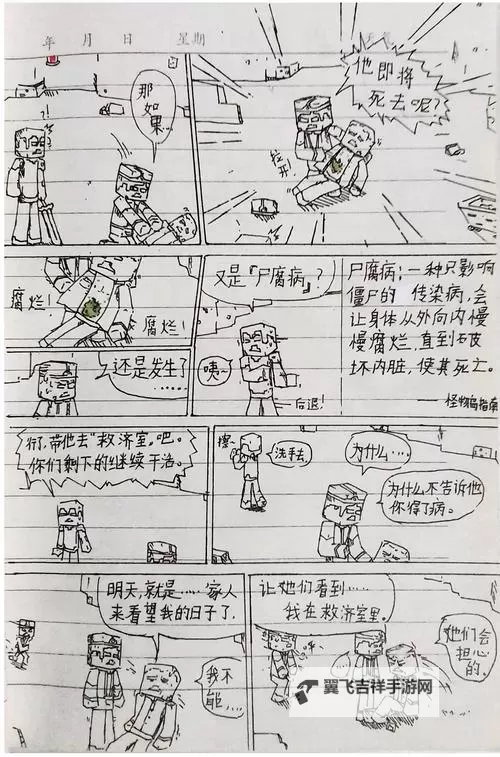 年 月 日 星期 天气
那
如果…
?!
他即将
死去呢?
拉开!
腐烂!
腐烂!
…还是发生了
…
又是『尸腐病』?
咦~
后退!
尸腐病:一种只影响
僵尸的 传染病,会
让身体从外向内慢
慢腐烂,直到破
坏内脏,使其死亡。
——怪物岛指南
行,带他去"救济室"吧。
你们剩下的继续干活。
擦~
洗手去.
为什么…
为什么不告诉他
你得了病。
明天,就是……家人
来看望我的日子了.
我不
能……
让她们看到……
我在救济室里.
她们会
担心
的.
翼飞吉祥手游网